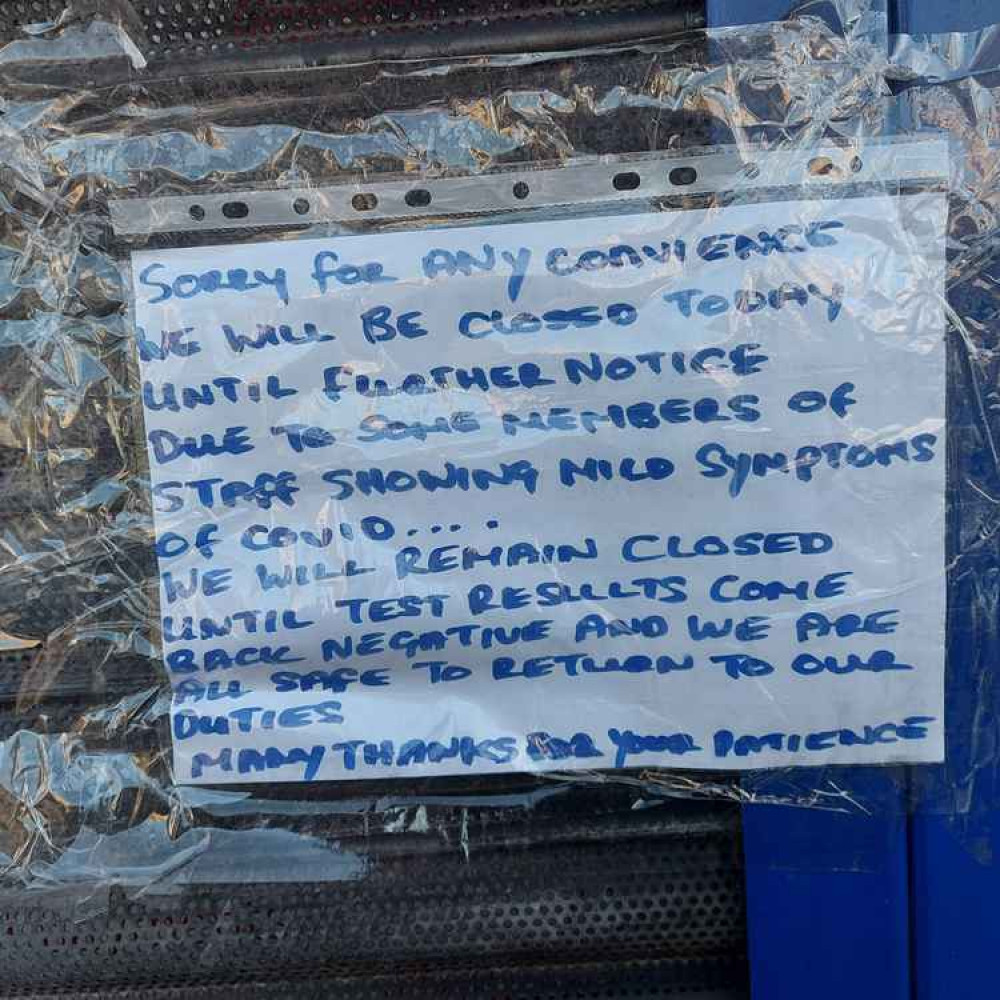 SORRY for ANY CONVIENCE
WE WILL BE CLOSED TODAY
UNTIL FURTHER NOTICE
DUE TO SOME MEMBERS OF
STAFF SHOWING MILD SYMPTOMS
OF COVID.....
WE WILL REMAIN CLOSED
UNTIL TEST RESULLTS COME
BACK NEGATIVE AND WE ARE
ALL SAFE TO RETURN TO OUR
DUTIES
MANY THANKS FOR YOUR PATIENCE